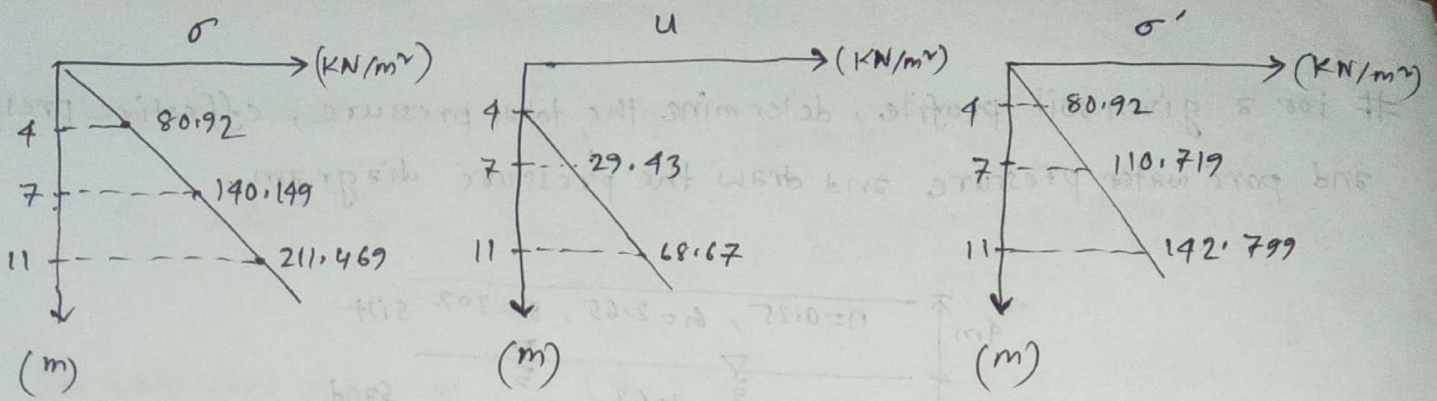 σ
(KN/m²)
4
80.92
7
140.149
11
211.469
(m)
u
(KN/m²)
4
7
29.43
11
68.67
(m)
σ'
(KN/m²)
4
80.92
7
110.719
11
142.799
(m)